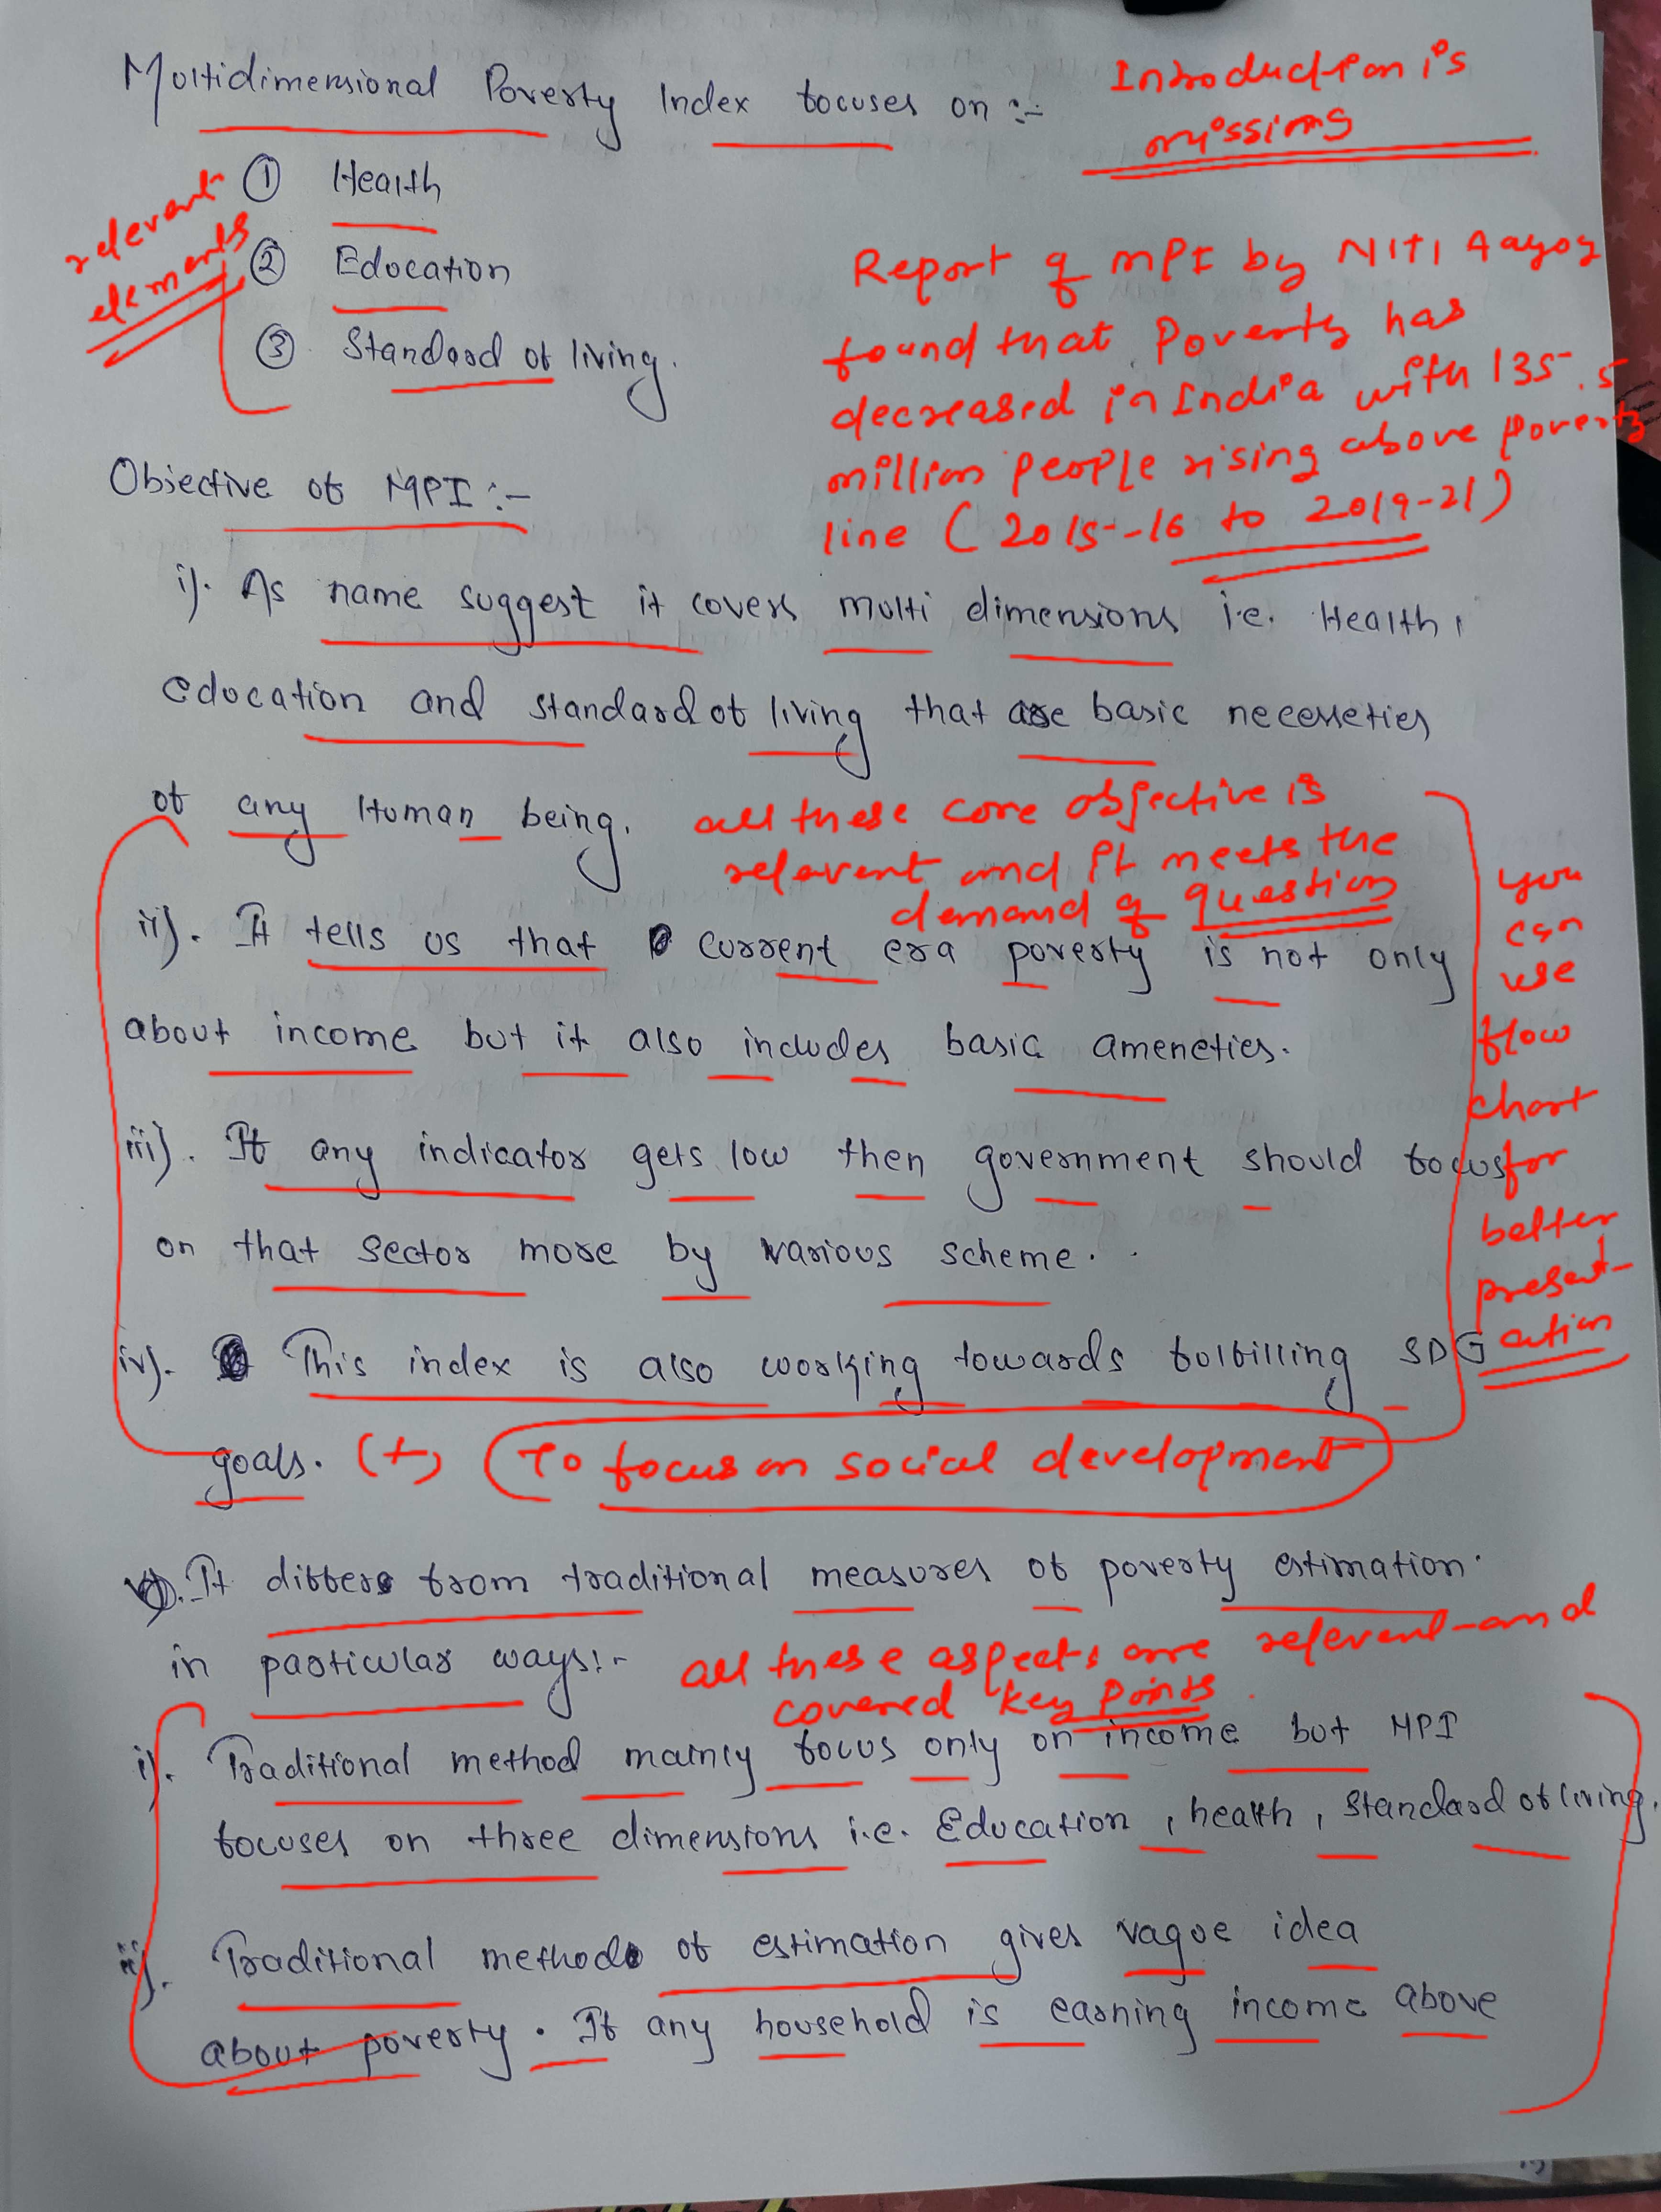 Multidimensional Poverty Index focuses on :-
Introduction is
missing
① Health
② Education
③ Standard of living.
relevant
elements
Report of MPI by NITI Aayog
found that Poverty has
decreased in India with 135.5
million people rising above poverty
line (2015-16 to 2019-21)
Objective of MPI :-
i). As name suggest it covers multi dimensions i.e. Health,
education and standard of living that are basic necesseties
of any Human being.
all these core objective is
relevent and it meets the
demand of question
ii). It tells us that current era poverty is not only
about income but it also includes basic ameneties.
iii). If any indicator gets low then government should focus
on that sector more by various scheme.
iv). This index is also working towards fulfilling SDG
goals. (+) To focus on social development
you
can
use
flow
chart
for
better
present-
ation
It differs from traditional measures of poverty estimation
in particular ways:-
all these aspects are relevent and
covered key points
i). Traditional method mainly focus only on income but MPI
focuses on three dimensions i.e. Education, health, standard of living.
ii). Traditional method of estimation gives vague idea
about poverty. If any household is earning income above